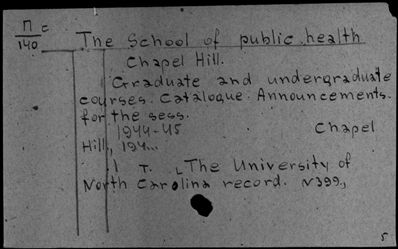 П =
140
The School of public health
Chapel Hill.
Graduate and undergraduate
courses. Catalogue. Announcements.
for the sess.
1944-45 Chapel
Hill, 194...
1 T. The University of
North Carolina record. N399,
5